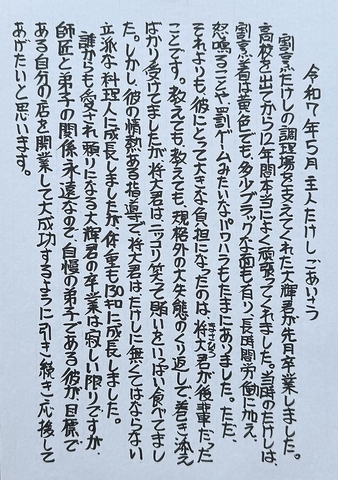 令和7年5月 主人たけしごあいさつ
割烹たけしの調理場を支えてくれた大輝君が先月卒業しました。
高校を出てから12年間本当によく頑張ってくれました。当時のたけしは、
割烹着は黄色でも、多少ブラックな面も有り、長時間労働に加え、
怒鳴ることや罰ゲームみたいなパワハラもたまにありました。ただ、
それよりも、彼にとって大きな負担になったのは、将大君が後輩だった
ことです。教えても、教えても、規格外の大失態のくり返しで、巻き添え
ばかり受けてましたが将大君は、ニッコリ笑って賄いをいっぱい食べてまし
た。しかし、彼の情熱ある指導で将大君はたけしに無くてはならない
立派な料理人に成長しましたが、体重も130㎏に成長しました。
誰からも愛され頼りになる大輝君の卒業は寂しい限りですが、
師匠と弟子の関係は永遠なので、自慢の弟子である彼が目標で
ある自分の店を開業して大成功するように引き続き応援して
あげたいと思います。